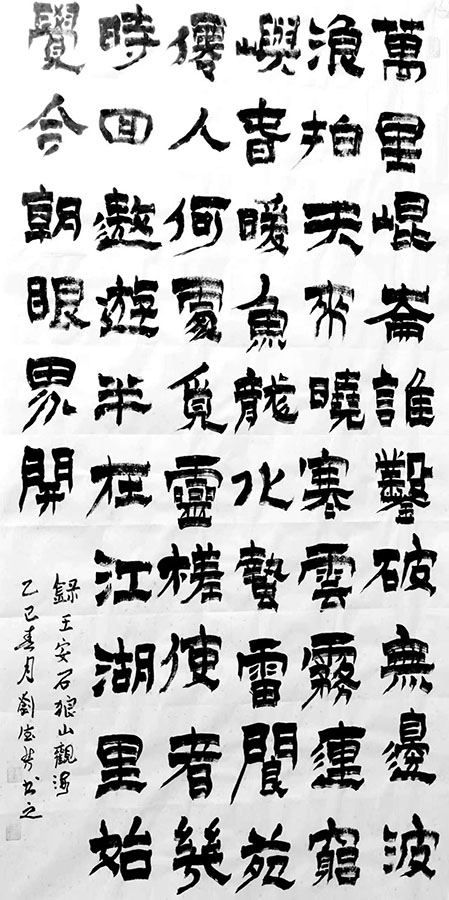 萬里崐崙誰鑿破無邊波
浪拍天來曉寒雲霧連窮
嶼春暖魚龍水蟄雷閬苑
僊人何處覓靈槎使者幾
時回遨遊半在江湖里始
覺今朝眼界開
録王安石狼山觀海
乙巳春月劉德书之